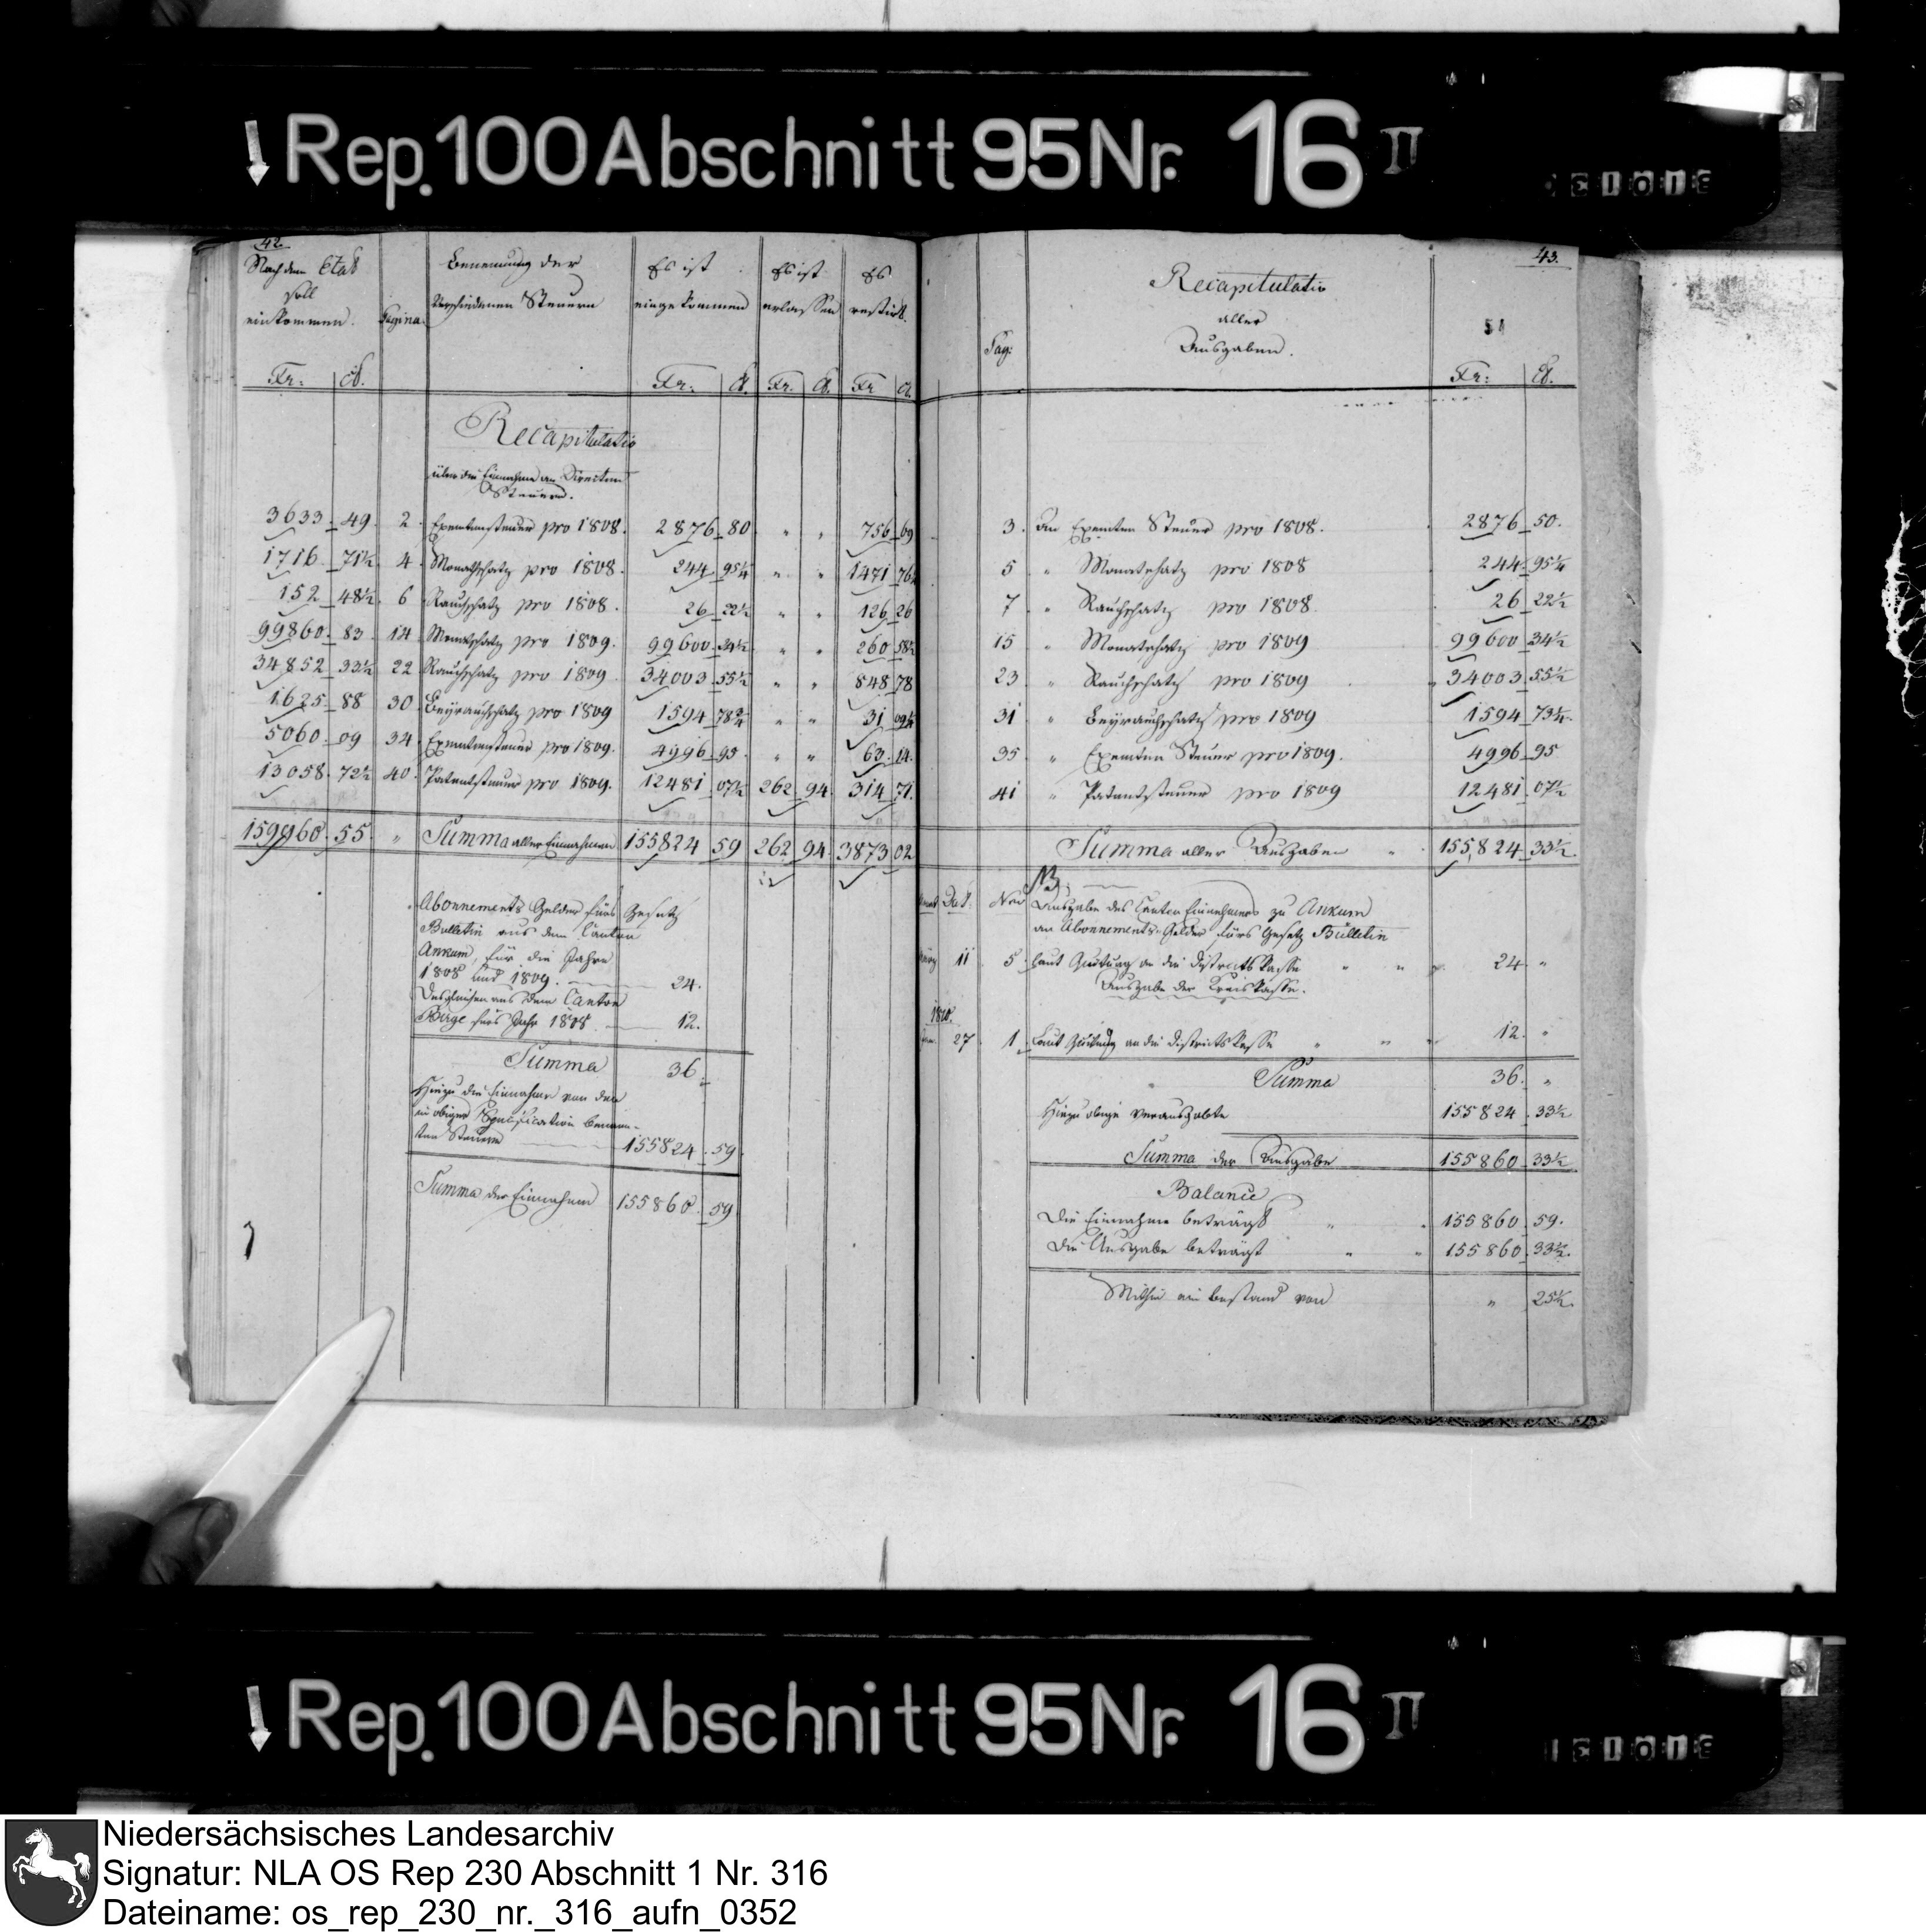 Rep. 100 Abschnitt 95 Nr. 16 II
42.
Nach dem Etat
soll
einkommen.
Pagina
Benennung der
verschiedenen Steuern
Es ist
eingekommen
Es ist
erlassen
Es
restirt.
Fr: ct. Fr: ct. Fr. ct. Fr ct.
Recapitulatio
über die Einnahme an Directen
Steuern.
3633 49 2 Exemtensteuer pro 1808. 2876 80 " " 756 69
1716 71½ 4 Monatschatz pro 1808. 244 95¼ " " 1471 76¼
152 48½ 6 Rauchschatz pro 1808. 26 22½ " " 126 26
99860 83 14 Monatschatz pro 1809. 99600 34½ " " 260 58½
34852 33½ 22 Rauchschatz pro 1809 34003 55½ " " 848 78
1625 88 30 Beyrauchschatz pro 1809 1594 78¾ " " 31 09¼
5060 09 34 Exemtensteuer pro 1809. 4996 95 " " 63 14
13058 72½ 40 Patentsteuer pro 1809. 12481 07½ 262 94 314 71
159960 55 " Summa aller Einnahmen 155824 59 262 94 3873 02
Abonnements Gelder fürs Gesetz
Bulletin aus dem Canton
Ankum, für die Jahre
1808 und 1809. 24.
Desgleichen aus dem Canton
fürs Jahr 1808 12.
Summa 36
Hiezu die Einnahme von den
in obiger Specification benann-
ten Steuern 155824 59
Summa der Einnahme 155860 59
43.
Recapitulatio
aller
Ausgaben.
51
Pag:
Fr: ct.
3. An Exemten Steuer pro 1808. 2876 50.
5 " Monatschatz pro 1808 244 95¼
7 " Rauchschatz pro 1808. 26 22½
15 " Monatschatz pro 1809 99600 34½
23 " Rauchschatz pro 1809 34003 55½
31 " Beyrauchschatz pro 1809 1594 73¼
35 " Exemten Steuer pro 1809. 4996 95
41 " Patentsteuer pro 1809 12481 07½
Summa aller Ausgaben " 155,824 33½
NB.
Dat. Nro Ausgabe des Canton Einnehmers zu Ankum
an Abonnements-Gelder fürs Gesetz Bulletin
11 5 Laut Quitung an die Districtskasse " " 24 "
Ausgabe der Kreiskasse.
1810.
27 1 Laut Quitung an die Districtskasse " " " 12 "
Summa 36. "
Hiezu obige verausgabte 155824 33½
Summa der Ausgabe 155860 33½
Balance
Die Einnahme beträgt " 155860 59.
Die Ausgabe beträgt " " 155860 33½.
Mithin ein Bestand von " 25½.
Rep. 100 Abschnitt 95 Nr. 16 II
Niedersächsisches Landesarchiv
Signatur: NLA OS Rep 230 Abschnitt 1 Nr. 316
Dateiname: os_rep_230_nr._316_aufn_0352